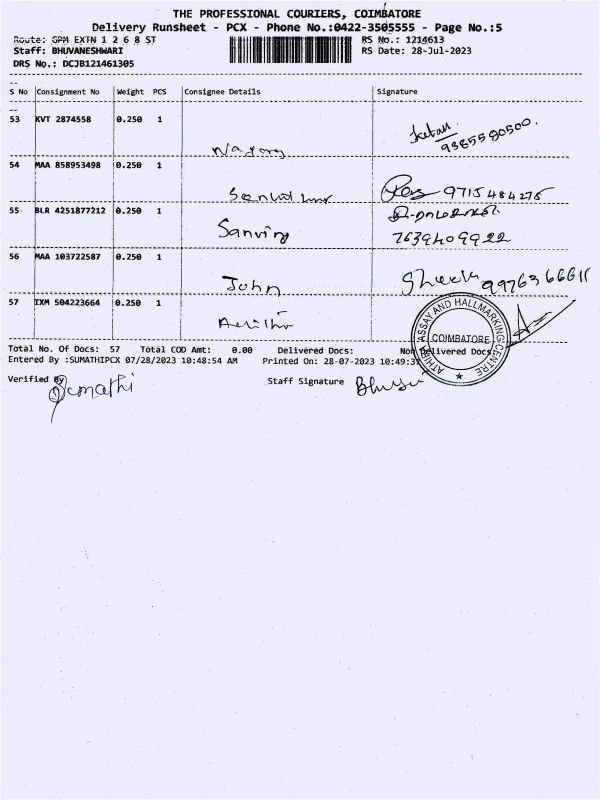 THE PROFESSIONAL COURIERS, COIMBATORE
Delivery Runsheet - PCX - Phone No.:0422-3505555 - Page No.:5
Route: GPM EXTN 1 2 6 8 ST
RS No.: 1214613
Staff: BHUVANESHWARI
RS Date: 28-Jul-2023
DRS No.: DCJB121461305
S No Consignment No Weight PCS Consignee Details Signature
53 KVT 2874558 0.250 1
54 MAA 858953498 0.250 1
9715484275
55 BLR 4251877212 0.250 1
7639409922
56 MAA 103722587 0.250 1
John
9976366611
57 IXM 504223664 0.250 1
ASSAY AND HALLMARKING CENTRE
COIMBATORE
Total No. Of Docs: 57 Total COD Amt: 0.00 Delivered Docs: Non Delivered Docs
Entered By :SUMATHIPCX 07/28/2023 10:48:54 AM Printed On: 28-07-2023 10:49:3
Verified By
Sumathi
Staff Signature